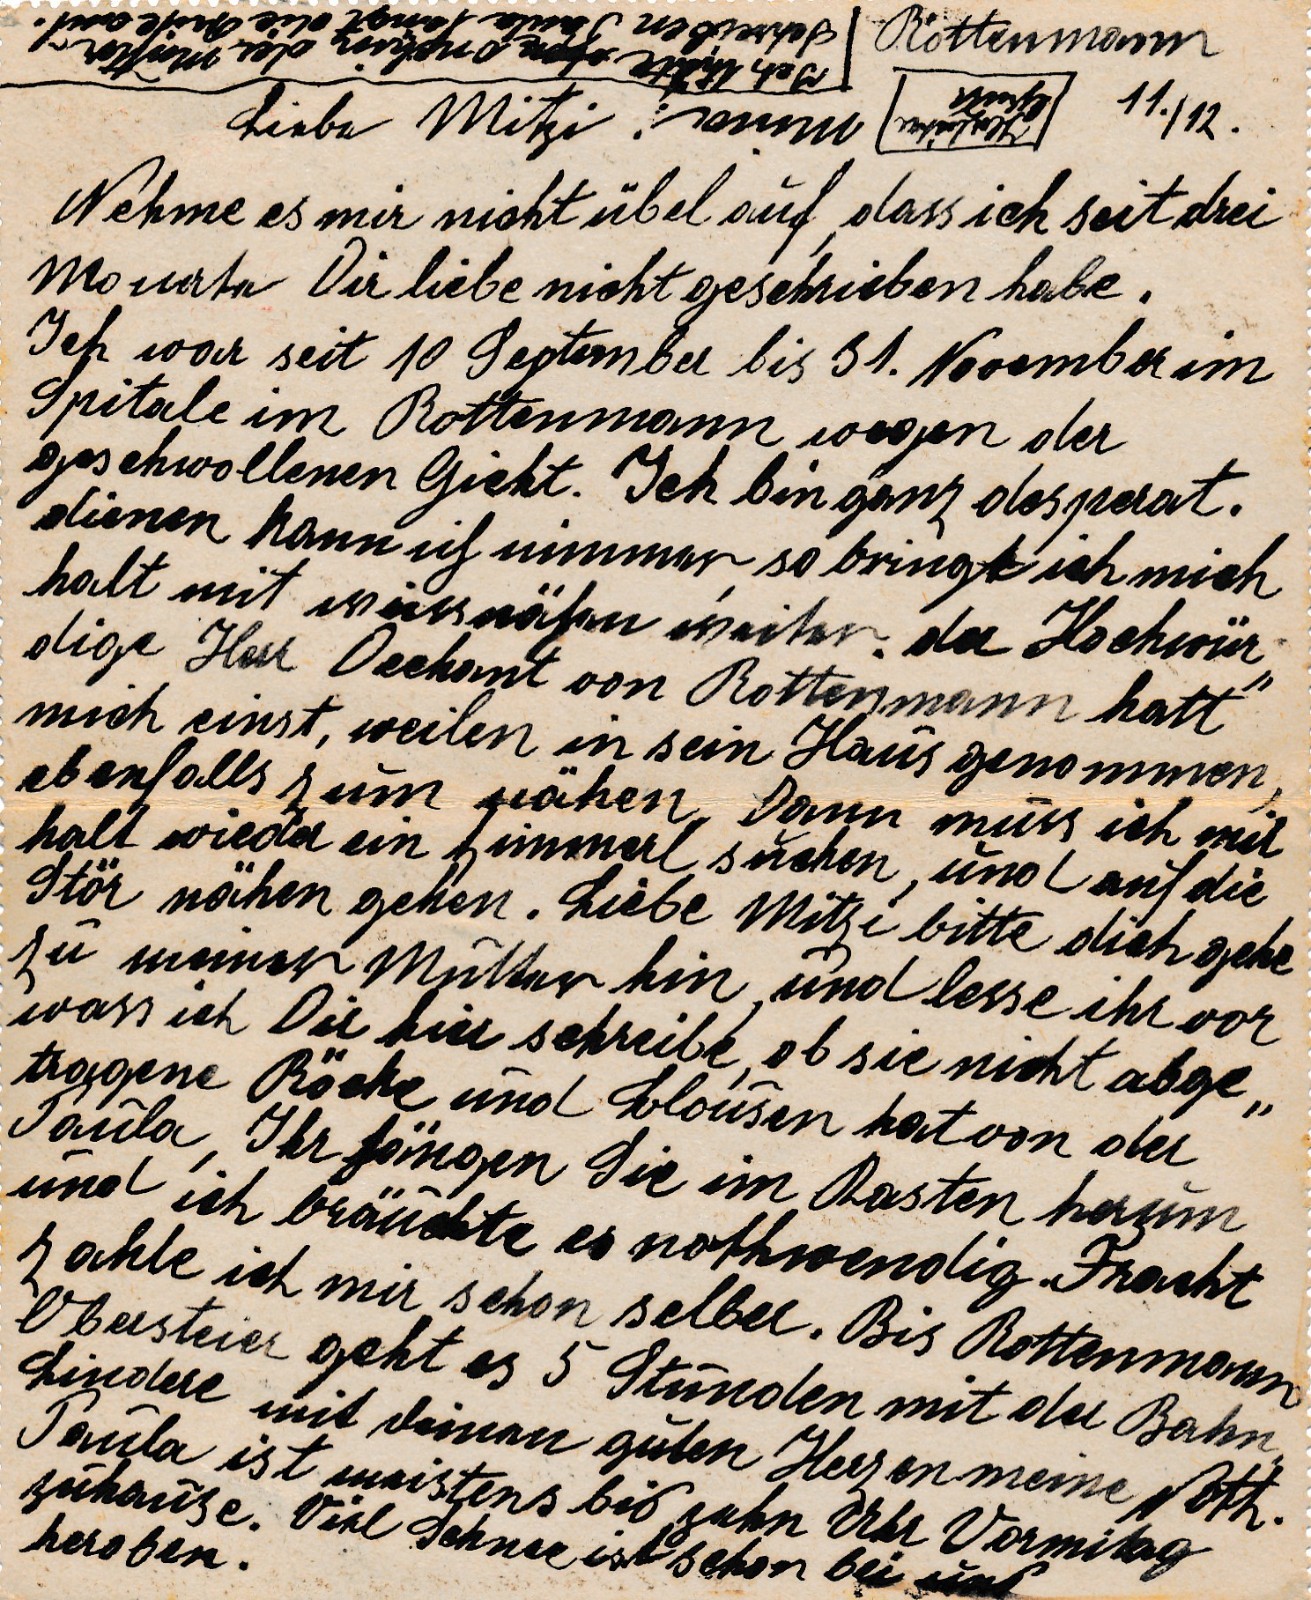 Rottenmann
11./12.
Liebe Mitzi!
Nehme es mir nicht übel auf, dass ich seit drei
Monate Dir liebe nicht geschrieben habe.
Ich war seit 10 September bis 31. November im
Spitale im Rottenmann wegen der
geschwollenen Gicht. Ich bin ganz desperat.
dienen kann ich nimmer, so bringe ich mich
halt mit weissnähen weiter. der Hochwür„
dige Herr Dechant von Rottenmann hatt
mich einst, weilen in sein Haus genommen,
ebenfalls zum nähen, Dann muss ich mir
halt wieder ein Zimmerl suchen, und auf die
Stör nähen gehen. Liebe Mitzi bitte dich gehe
zu meiner Mutter hin, und lesse ihr vor
wass ich Dir hier schreibe, ob sie nicht abge„
tragene Röcke und Blousen hat von der
Paula, Ihr hängen Sie im Kasten herum
und ich bräuchte es nothwendig. Fracht
zahle ich mir schon selber. Bis Rottenmann
Obersteier geht es 5 Stunden mit der Bahn,
Lindere mit deinen guten Herzen meine Noth.
Paula ist meistens bis zehn Uhr Vormitag
zuhause. Viel Schnee ist schon bei uns
heroben.
Ich
schreiben Paula fangt die Briefe auf.